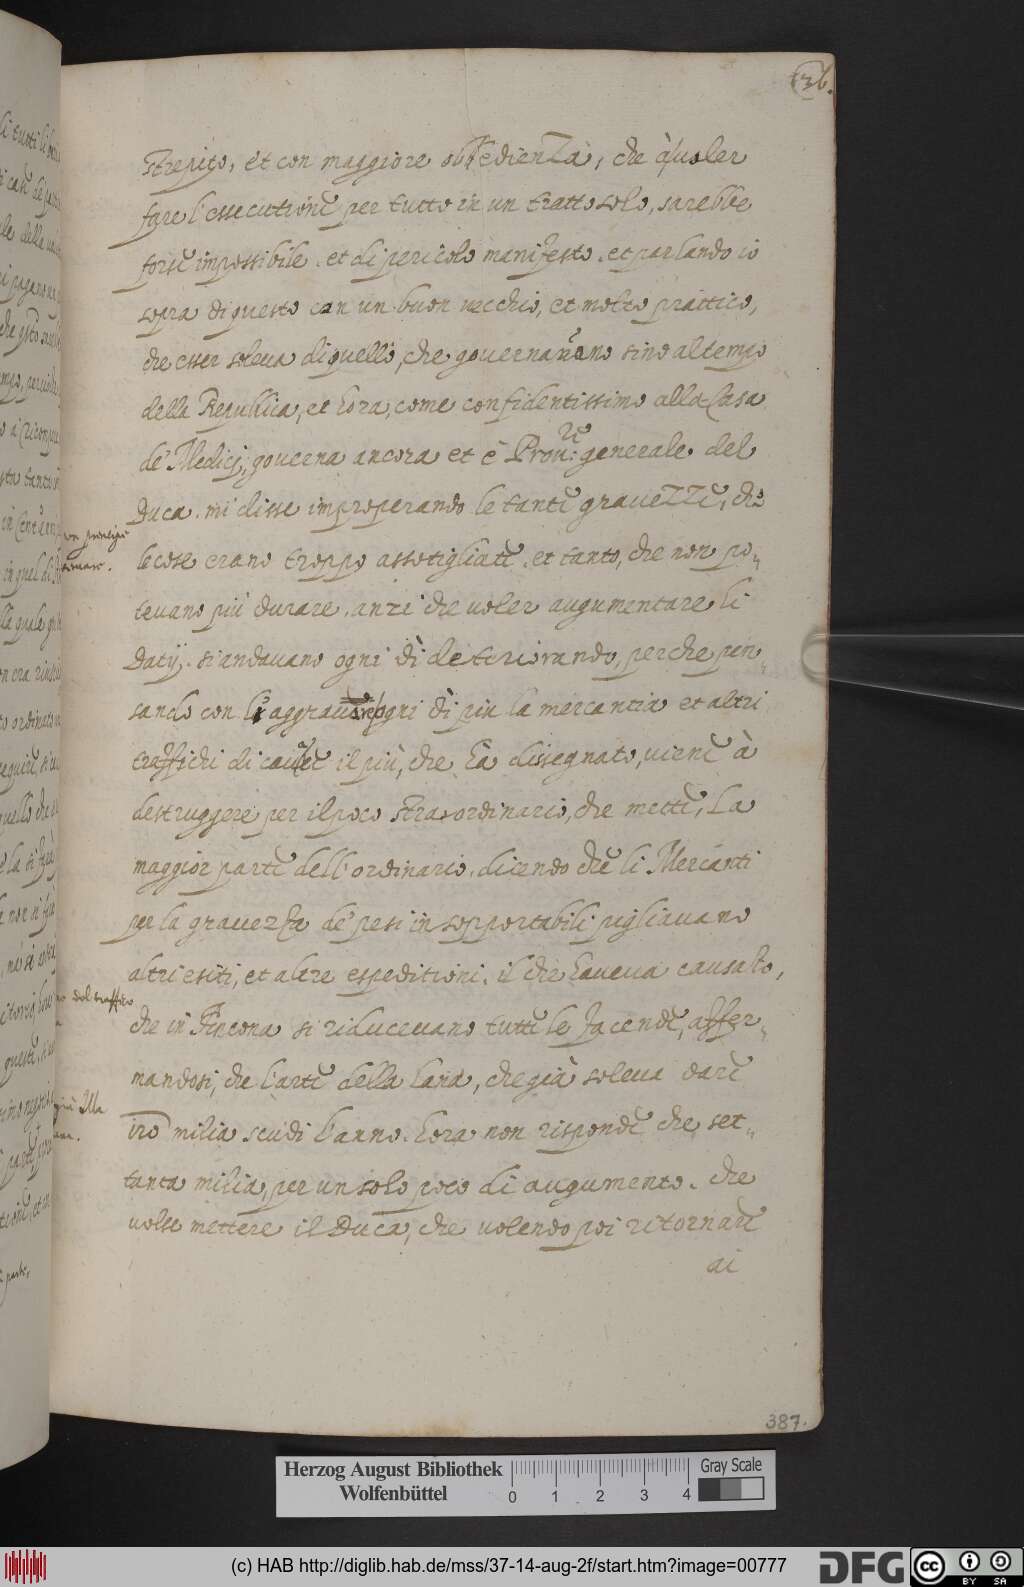 136.
strepito, et con maggiore obbedienza, che à uoler
fare l'essecutione per tutto in un tratto solo, sarebbe
forse impossibile. et di pericolo manifesto. et parlando io
sopra di questo con un buon vecchio, et molto prattico,
che esser soleua di quelli, che gouernauano sino al tempo
della Republica, et hora, come confidentissimo alla Casa
de' Medici, gouerna ancora et è Prou.re generale del
Duca. mi disse improperando le tante grauezze, che
le cose erano troppo assotigliate. et tanto, che non po-
teuano più durare. anzi che uoler augumentare li
Datij. si andauano ogni dì deteriorando, perche pen-
sando con li aggrauare ogni dì piu la mercantia et altri
traffichi di cauare il più, che hà dissegnato, viene à
destruggere per il poco strasordinario, che mette, la
maggior parte dell'ordinario. dicendo che li Mercanti
per la grauezza de' pesi insopportabili pigliauano
altri esiti, et altre espeditioni. il che haueua causato,
che in Ancona si riduceuano tutte le facende, affer-
mandosi, che l'arte della lana, che già soleua dare
iro milia scudi l'anno. hora non risponde che set-
tanta milia, per un solo poco di augumento. che
uolse mettere il Duca, che uolendo poi ritornare
ai
387.
Herzog August Bibliothek
Wolfenbüttel
0 1 2 3 4
Gray Scale
(c) HAB http://diglib.hab.de/mss/37-14-aug-2f/start.htm?image=00777
DFG
cc BY SA